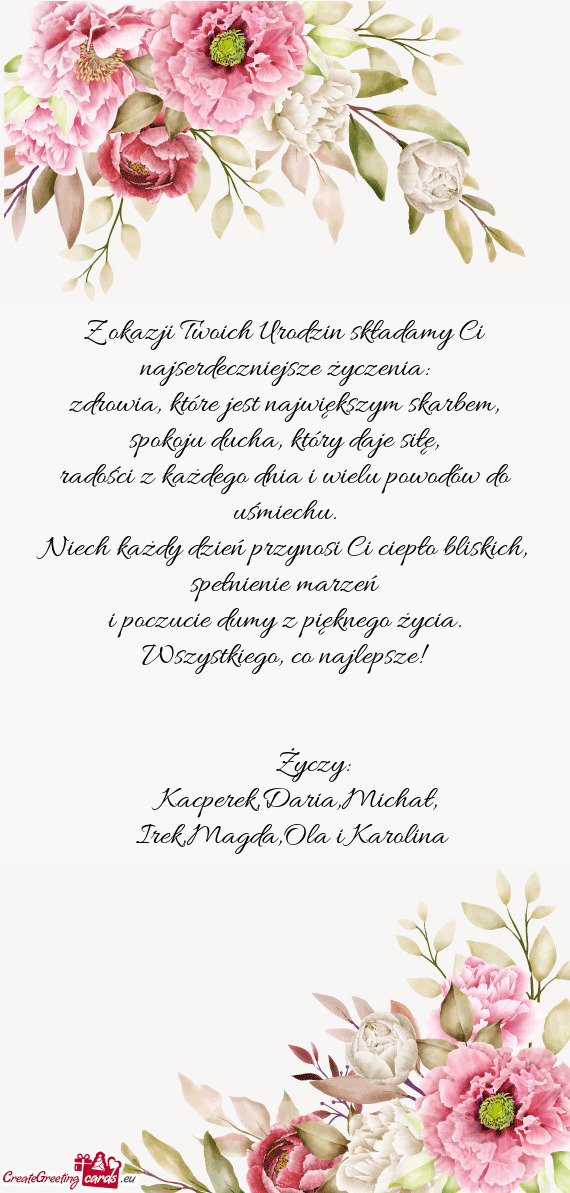 Z okazji Twoich Urodzin składamy Ci
najserdeczniejsze życzenia:
zdrowia, które jest największym skarbem,
spokoju ducha, który daje siłę,
radości z każdego dnia i wielu powodów do
uśmiechu.
Niech każdy dzień przynosi Ci ciepło bliskich,
spełnienie marzeń
i poczucie dumy z pięknego życia.
Wszystkiego, co najlepsze!
Życzy:
Kacperek,Daria,Michał,
Irek,Magda,Ola i Karolina
CreateGreeting cards .eu